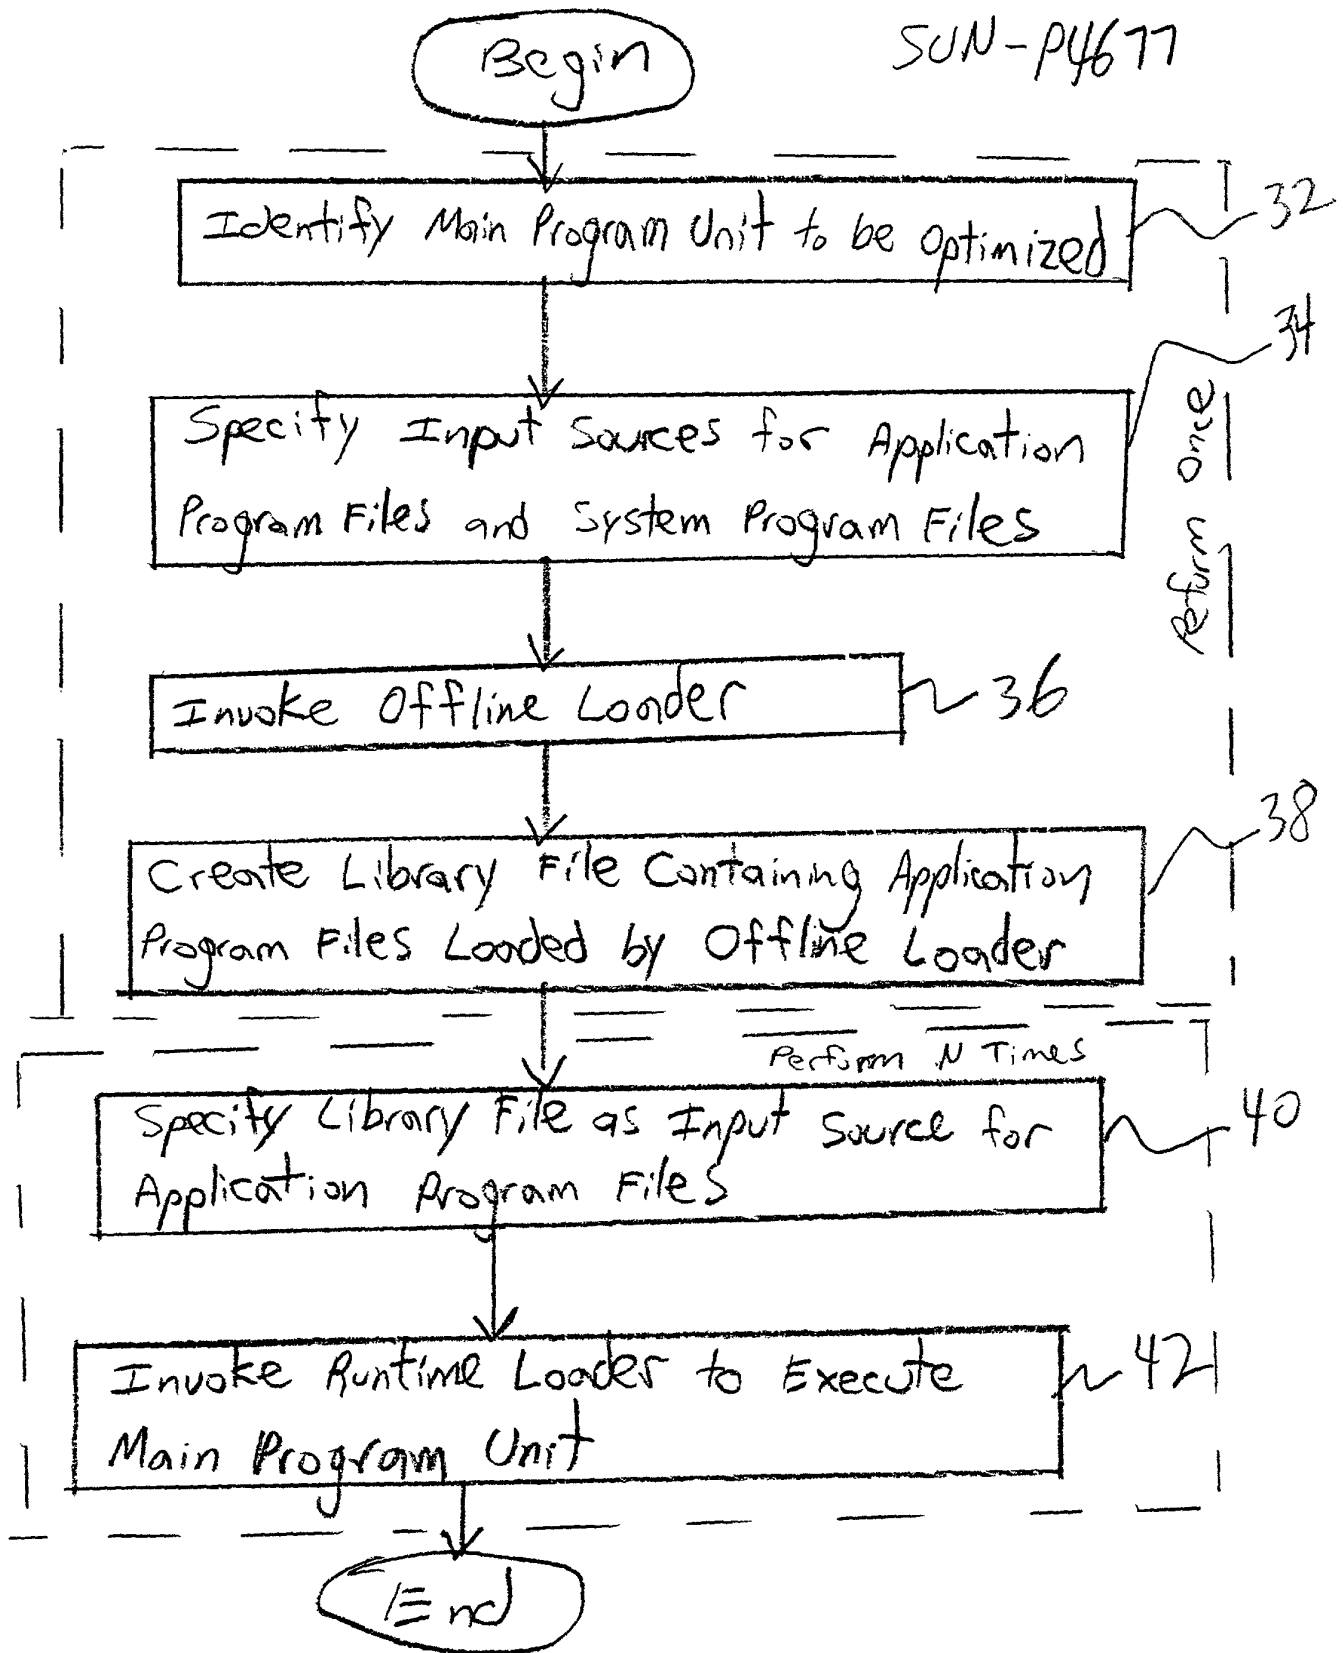 Begin
SUN-P4677
Identify Main Program Unit to be Optimized
32
34
Specify Input Sources for Application
Program Files and System Program Files
Perform Once
Invoke Offline Loader
36
38
Create Library File Containing Application
Program Files Loaded by Offline Loader
Perform N Times
Specify Library File as Input Source for
Application Program Files
40
Invoke Runtime Loader to Execute
Main Program Unit
42
End